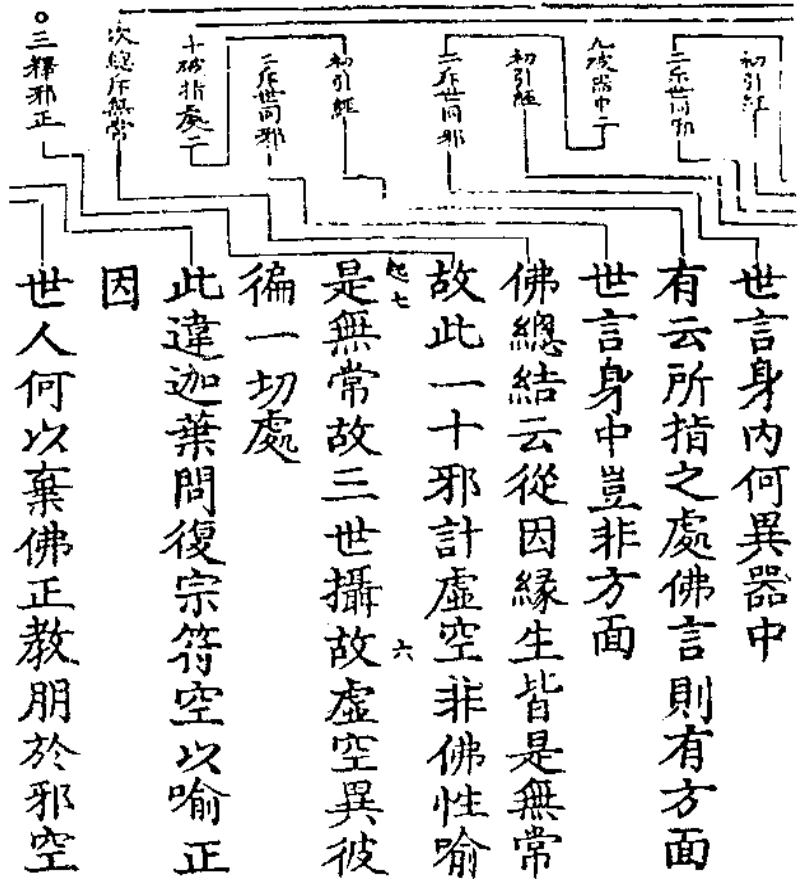 初引経
二斥世同邪
九破器中二
初引経
二斥世同邪
初引経
二斥世同邪
十破指處二
次總斥無常
三釋邪正
世言身内何異器中
有云所指之處佛言則有方面
世言身中豈非方面
佛總結云從因緣生皆是無常
故此一十邪計虛空非佛性喻
起七
六
是無常故三世攝故虛空異彼
徧一切處
此違迦葉問復宗符空以喻正
因
世人何以棄佛正教朋於邪空